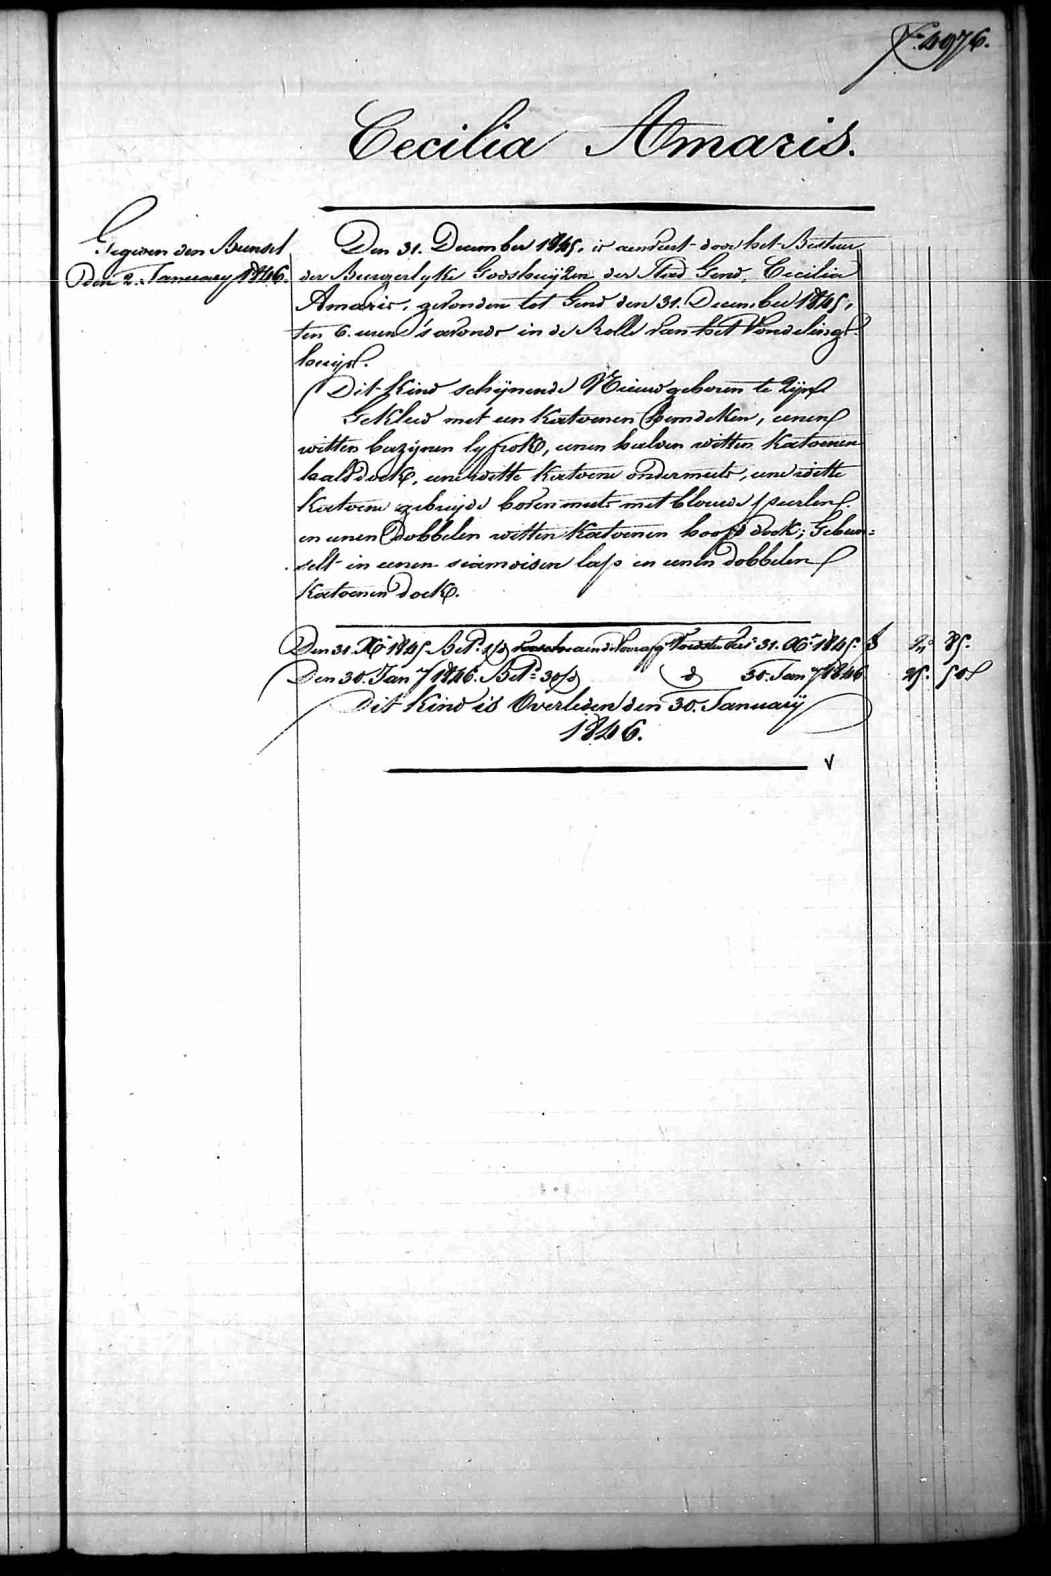 F.° 4976.
Cecilia Amaris.
Gegeven den Bunsel
den 2. January 1846.
Den 31. December 1845. is aenveert door het Bestuer
der Burgerlyke Godshuijzen der Stad Gend, Cecilia
Amaris, gevonden tot Gend den 31. December 1845,
ten 6. uren s'avonds in de Rolle van het Vondeling-
huijs.
Dit Kind schijnende Nieuw geboren te zijn
Gekleed met een Katoenen hemdeken, eenen
witten bazijnen lyfrok, eenen halven witten Katoenen
halsdoek, eene witte Katoene ondermuts, eene witte
Katoene gebreyde bovenmuts met blouwe peerlen
en eenen dobbelen witten Katoenen hoofd doek; Gebun=
selt in eenen siamoisen lap en eenen dobbelen
Katoenen doek.
Den 31. Xb. 1845 Bet. 1/d Voedster 31. Xb. 1845. 2. 85.
Den 30. Jan.y 1846. Bet. 30/d d° 30. Jan.y 1846 25. 50
Dit Kind is Overleden den 30. January
1846.